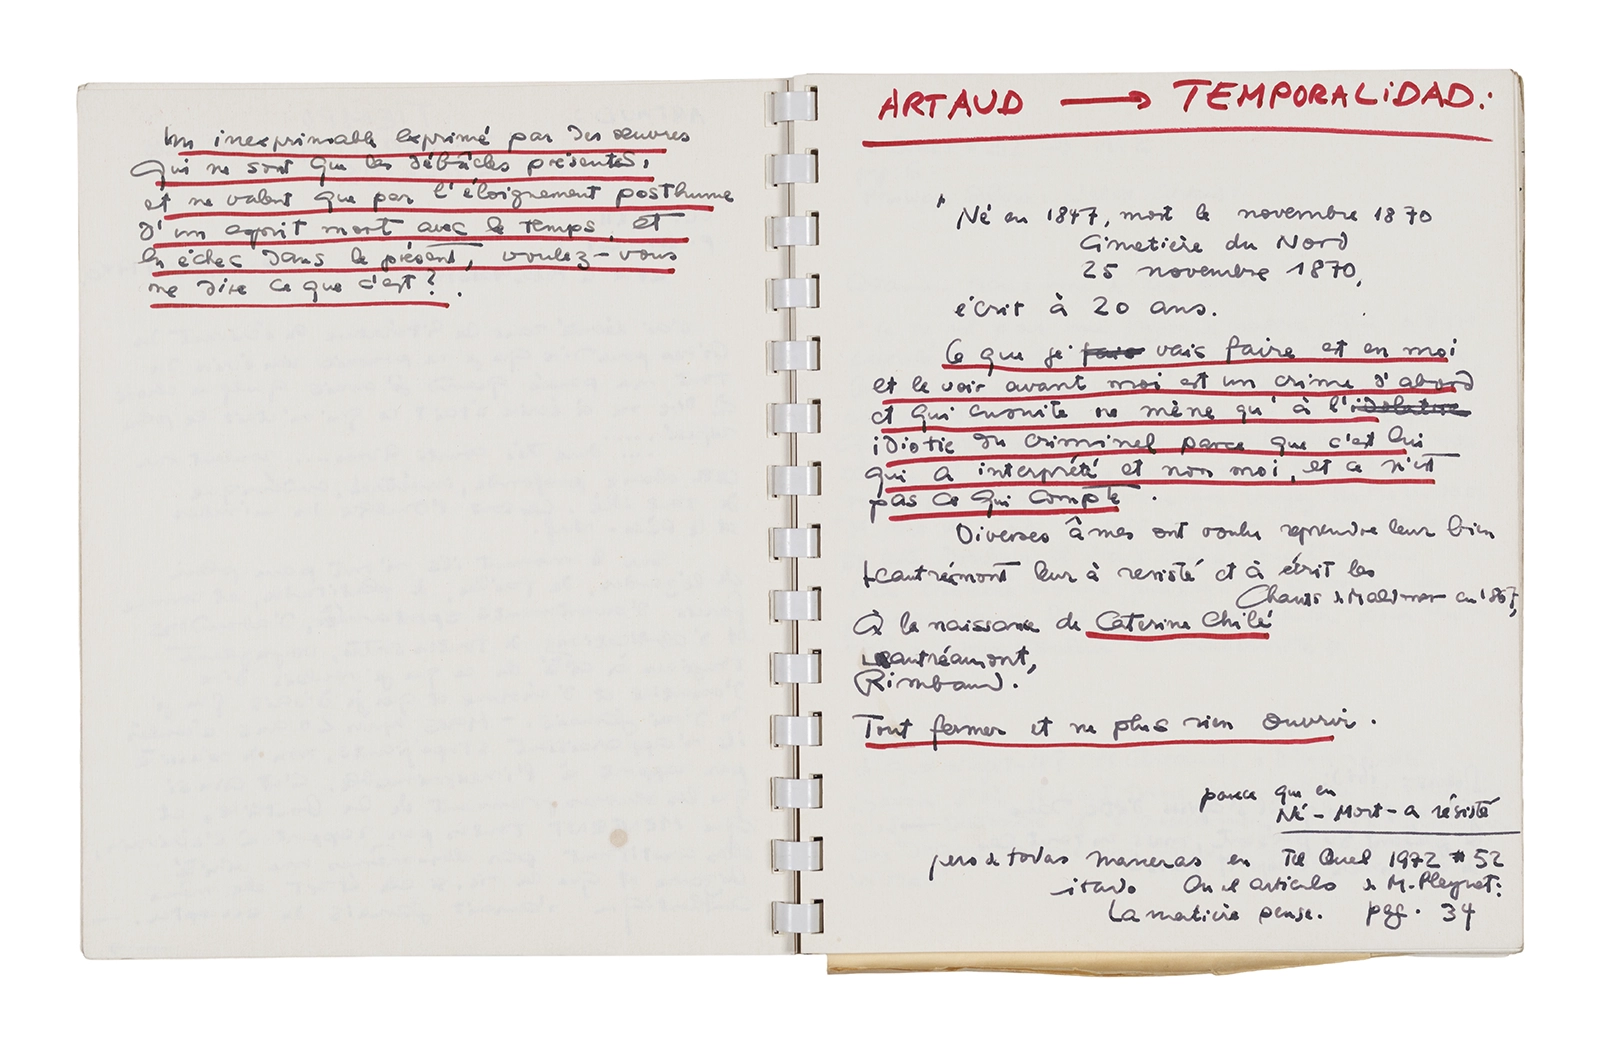 Un inexprimable exprimé par des œuvres
qui ne sont que les débâcles présentes,
et ne valent que par l'éloignement posthume
d'un esprit mort avec le temps, et
en échec dans le présent, voulez-vous
me dire ce que c'est?.
ARTAUD → TEMPORALIDAD.:
Né en 1847, mort le novembre 1870
Cimetière du Nord
25 novembre 1870,
écrit à 20 ans.
Ce que je fais vais faire et en moi
et le voir avant moi est un crime d'abord
et qui ensuite ne mène qu'à l'idolatrie
idiotie du criminel parce que c'est lui
qui a interprété et non moi, et ce n'est
pas ce qui compte.
Diverses âmes ont voulu reprendre leur bien
Lcautréamont leur à resisté et à écrit les
Chants de Maldoror en 1867,
À la naissance de Caterine Chilé
Lautréamont,
Rimbaud.
Tout fermer et ne plus rien ouvrir.
parce que en
Né - Mort - a résisté
pero de todas maneras en Tel Quel 1972 # 52
citado en el articulo de M. Pleynet:
La matière pense. pag. 34